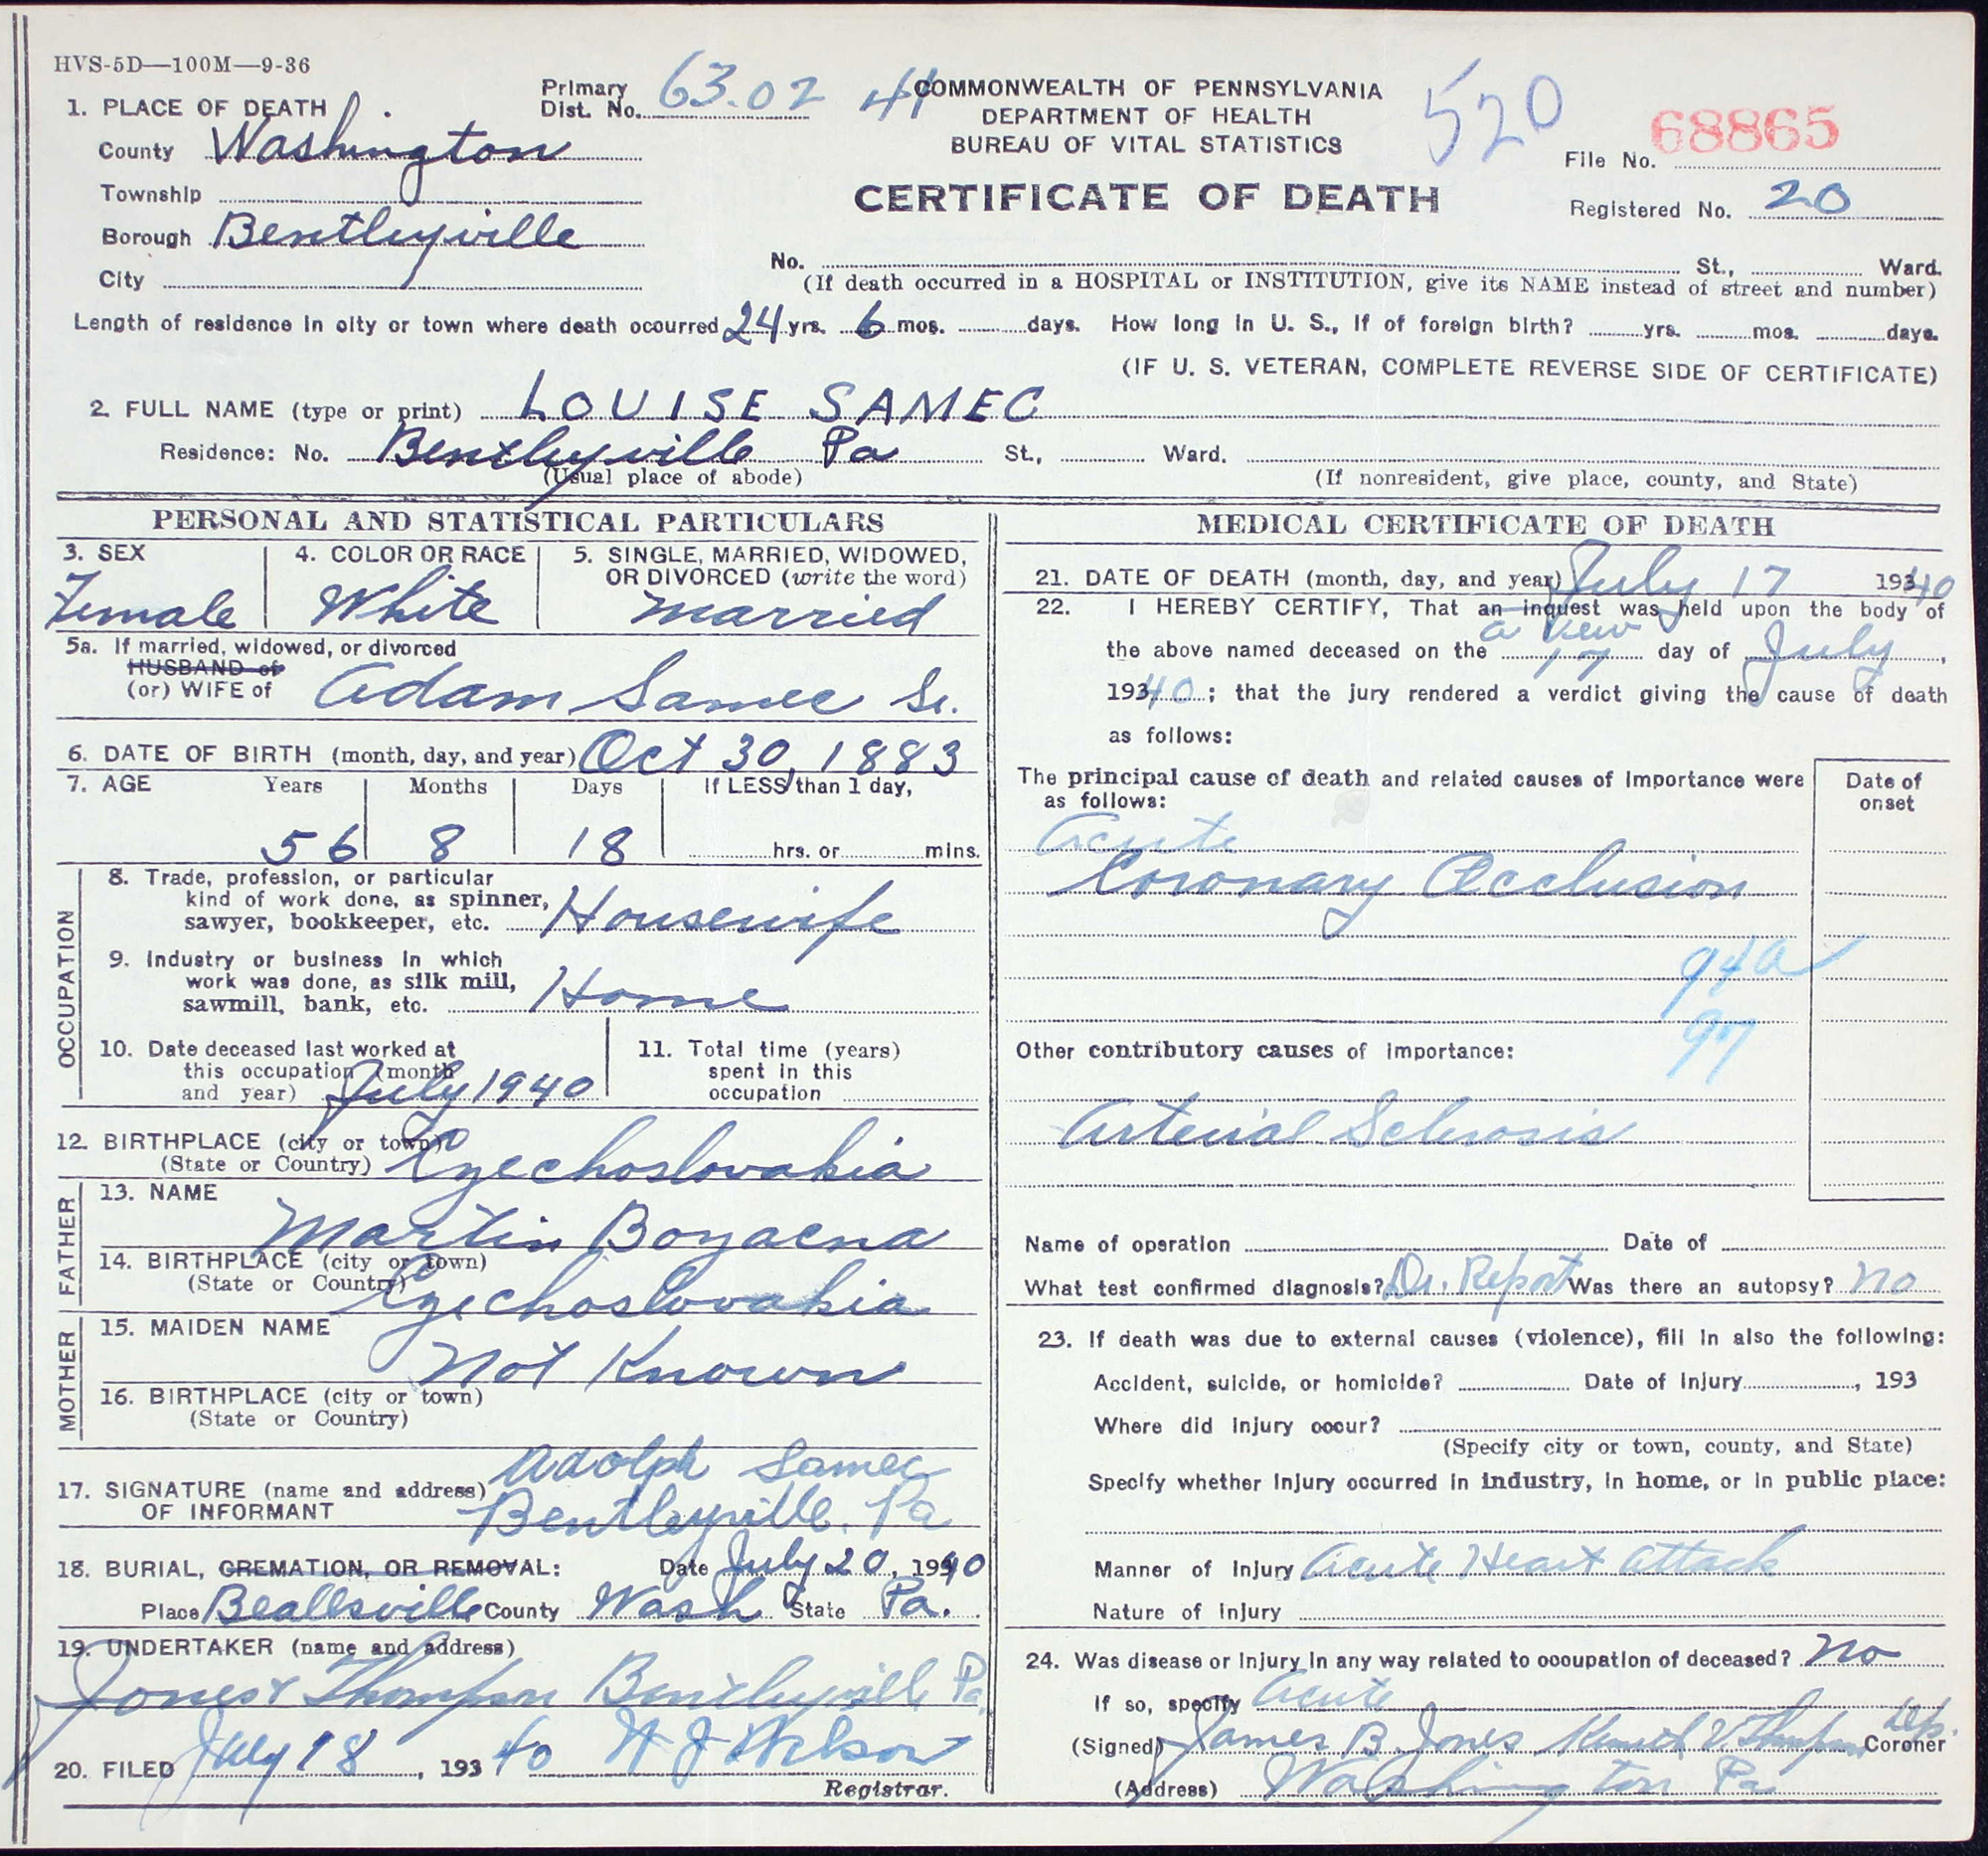 HVS-5D—100M—9-36
1. PLACE OF DEATH
County Washington
Township
Borough Bentleyville
City
Primary
Dist. No. 63.02 41
COMMONWEALTH OF PENNSYLVANIA
DEPARTMENT OF HEALTH
BUREAU OF VITAL STATISTICS
CERTIFICATE OF DEATH
520
68865
File No.
Registered No. 20
No. St., Ward.
(If death occurred in a HOSPITAL or INSTITUTION, give its NAME instead of street and number)
Length of residence in city or town where death occurred 24 yrs. 6 mos. days. How long in U. S., if of foreign birth? yrs. mos. days.
(IF U. S. VETERAN, COMPLETE REVERSE SIDE OF CERTIFICATE)
2. FULL NAME (type or print) LOUISE SAMEC
Residence: No. Bentleyville Pa St., Ward.
(Usual place of abode) (If nonresident, give place, county, and State)
PERSONAL AND STATISTICAL PARTICULARS
3. SEX
Female
4. COLOR OR RACE
White
5. SINGLE, MARRIED, WIDOWED,
OR DIVORCED (write the word)
Married
5a. If married, widowed, or divorced
HUSBAND of
(or) WIFE of Adam Samec Sr.
6. DATE OF BIRTH (month, day, and year) Oct 30, 1883
7. AGE Years Months Days If LESS than 1 day,
56 8 18 hrs. or mins.
OCCUPATION
8. Trade, profession, or particular
kind of work done, as spinner,
sawyer, bookkeeper, etc. Housewife
9. Industry or business in which
work was done, as silk mill,
sawmill, bank, etc. Home
10. Date deceased last worked at
this occupation (month
and year) July 1940
11. Total time (years)
spent in this
occupation
12. BIRTHPLACE (city or town)
(State or Country) Czechoslovakia
FATHER
13. NAME
Martin Bozacna
14. BIRTHPLACE (city or town)
(State or Country) Czechoslovakia
MOTHER
15. MAIDEN NAME
Not Known
16. BIRTHPLACE (city or town)
(State or Country)
17. SIGNATURE (name and address) Adolph Samec
OF INFORMANT Bentleyville. Pa
18. BURIAL, CREMATION, OR REMOVAL: Date July 20, 1940
Place Beallsville County Wash State Pa.
19. UNDERTAKER (name and address)
Jones & Thompson Bentleyville Pa.
20. FILED July 18, 193 40
Registrar.
MEDICAL CERTIFICATE OF DEATH
21. DATE OF DEATH (month, day, and year) July 17 193 40
22. I HEREBY CERTIFY, That an inquest was held upon the body of
a View
the above named deceased on the 17 day of July,
193 40; that the jury rendered a verdict giving the cause of death
as follows:
The principal cause of death and related causes of importance were
as follows:
Date of
onset
Acute
Coronary Occlusion
94a
97
Other contributory causes of importance:
Arterial Sclerosis
Name of operation Date of
What test confirmed diagnosis? Dr. Report Was there an autopsy? No
23. If death was due to external causes (violence), fill in also the following:
Accident, suicide, or homicide? Date of injury, 193
Where did injury occur?
(Specify city or town, county, and State)
Specify whether injury occurred in industry, in home, or in public place:
Manner of injury Acute Heart Attack
Nature of injury
24. Was disease or injury in any way related to occupation of deceased? No
If so, specify Acute
(Signed) James B. Jones Kenneth V. Thompson Dep. Coroner
(Address) Washington Pa